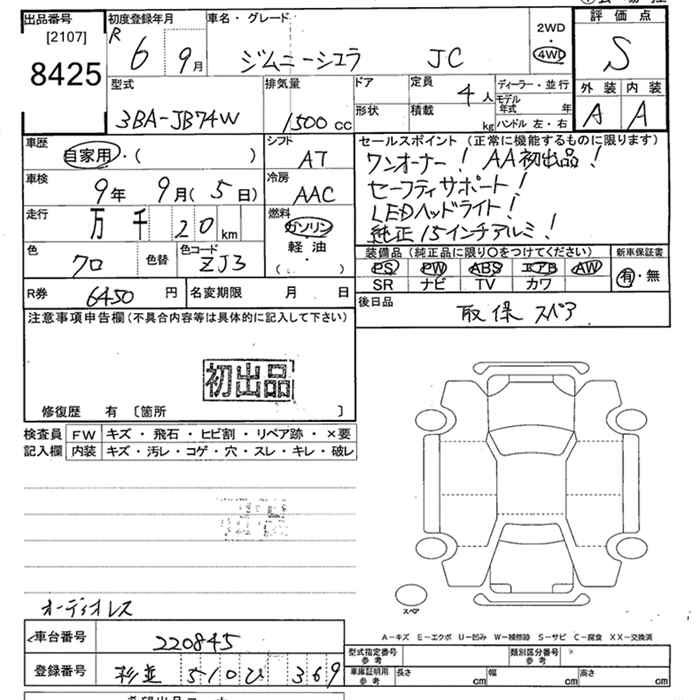 出品番号 [2107] 8425
初度登録年月 R 6 9月
車名・グレード ジムニーシエラ JC
2WD 4WD
評価点 S
外装 内装 A A
型式 3BA-JB74W
排気量 1500 cc
ドア 形状
定員 4人
積載 kg
ディーラー・並行
モデル年式 年
ハンドル 左・右
車歴 自家用・( )
シフト AT
車検 9年 9月(5日)
冷房 AAC
走行 万 千 20 km
燃料 ガソリン 軽油 ( )
色 クロ 色替 色コード ZJ3
セールスポイント (正常に機能するものに限ります)
ワンオーナー! AA初出品!
セーフティサポート!
LEDヘッドライト!
純正15インチアルミ!
装備品 (純正品に限り○をつけてください)
PS PW ABS エアB AW
SR ナビ TV カワ
新車保証書 有・無
R券 6450 円
名変期限 月 日
後日品 取 保 スペア
注意事項申告欄 (不具合内容等は具体的に記入して下さい)
初出品
修復歴 有 〔箇所 〕
検査員記入欄
FW キズ・飛石・ヒビ割・リペア跡・×要
内装 キズ・汚レ・コゲ・穴・スレ・キレ・破レ
オーディオレス
スペア
A-キズ E-エクボ U-凹み W-補修跡 S-サビ C-腐食 XX-交換済
車台番号 220845
型式指定番号 参考
類別区分番号 参考
登録番号 杉並 510ひ 369
車庫証明用 参考 長さ cm 幅 cm 高さ cm